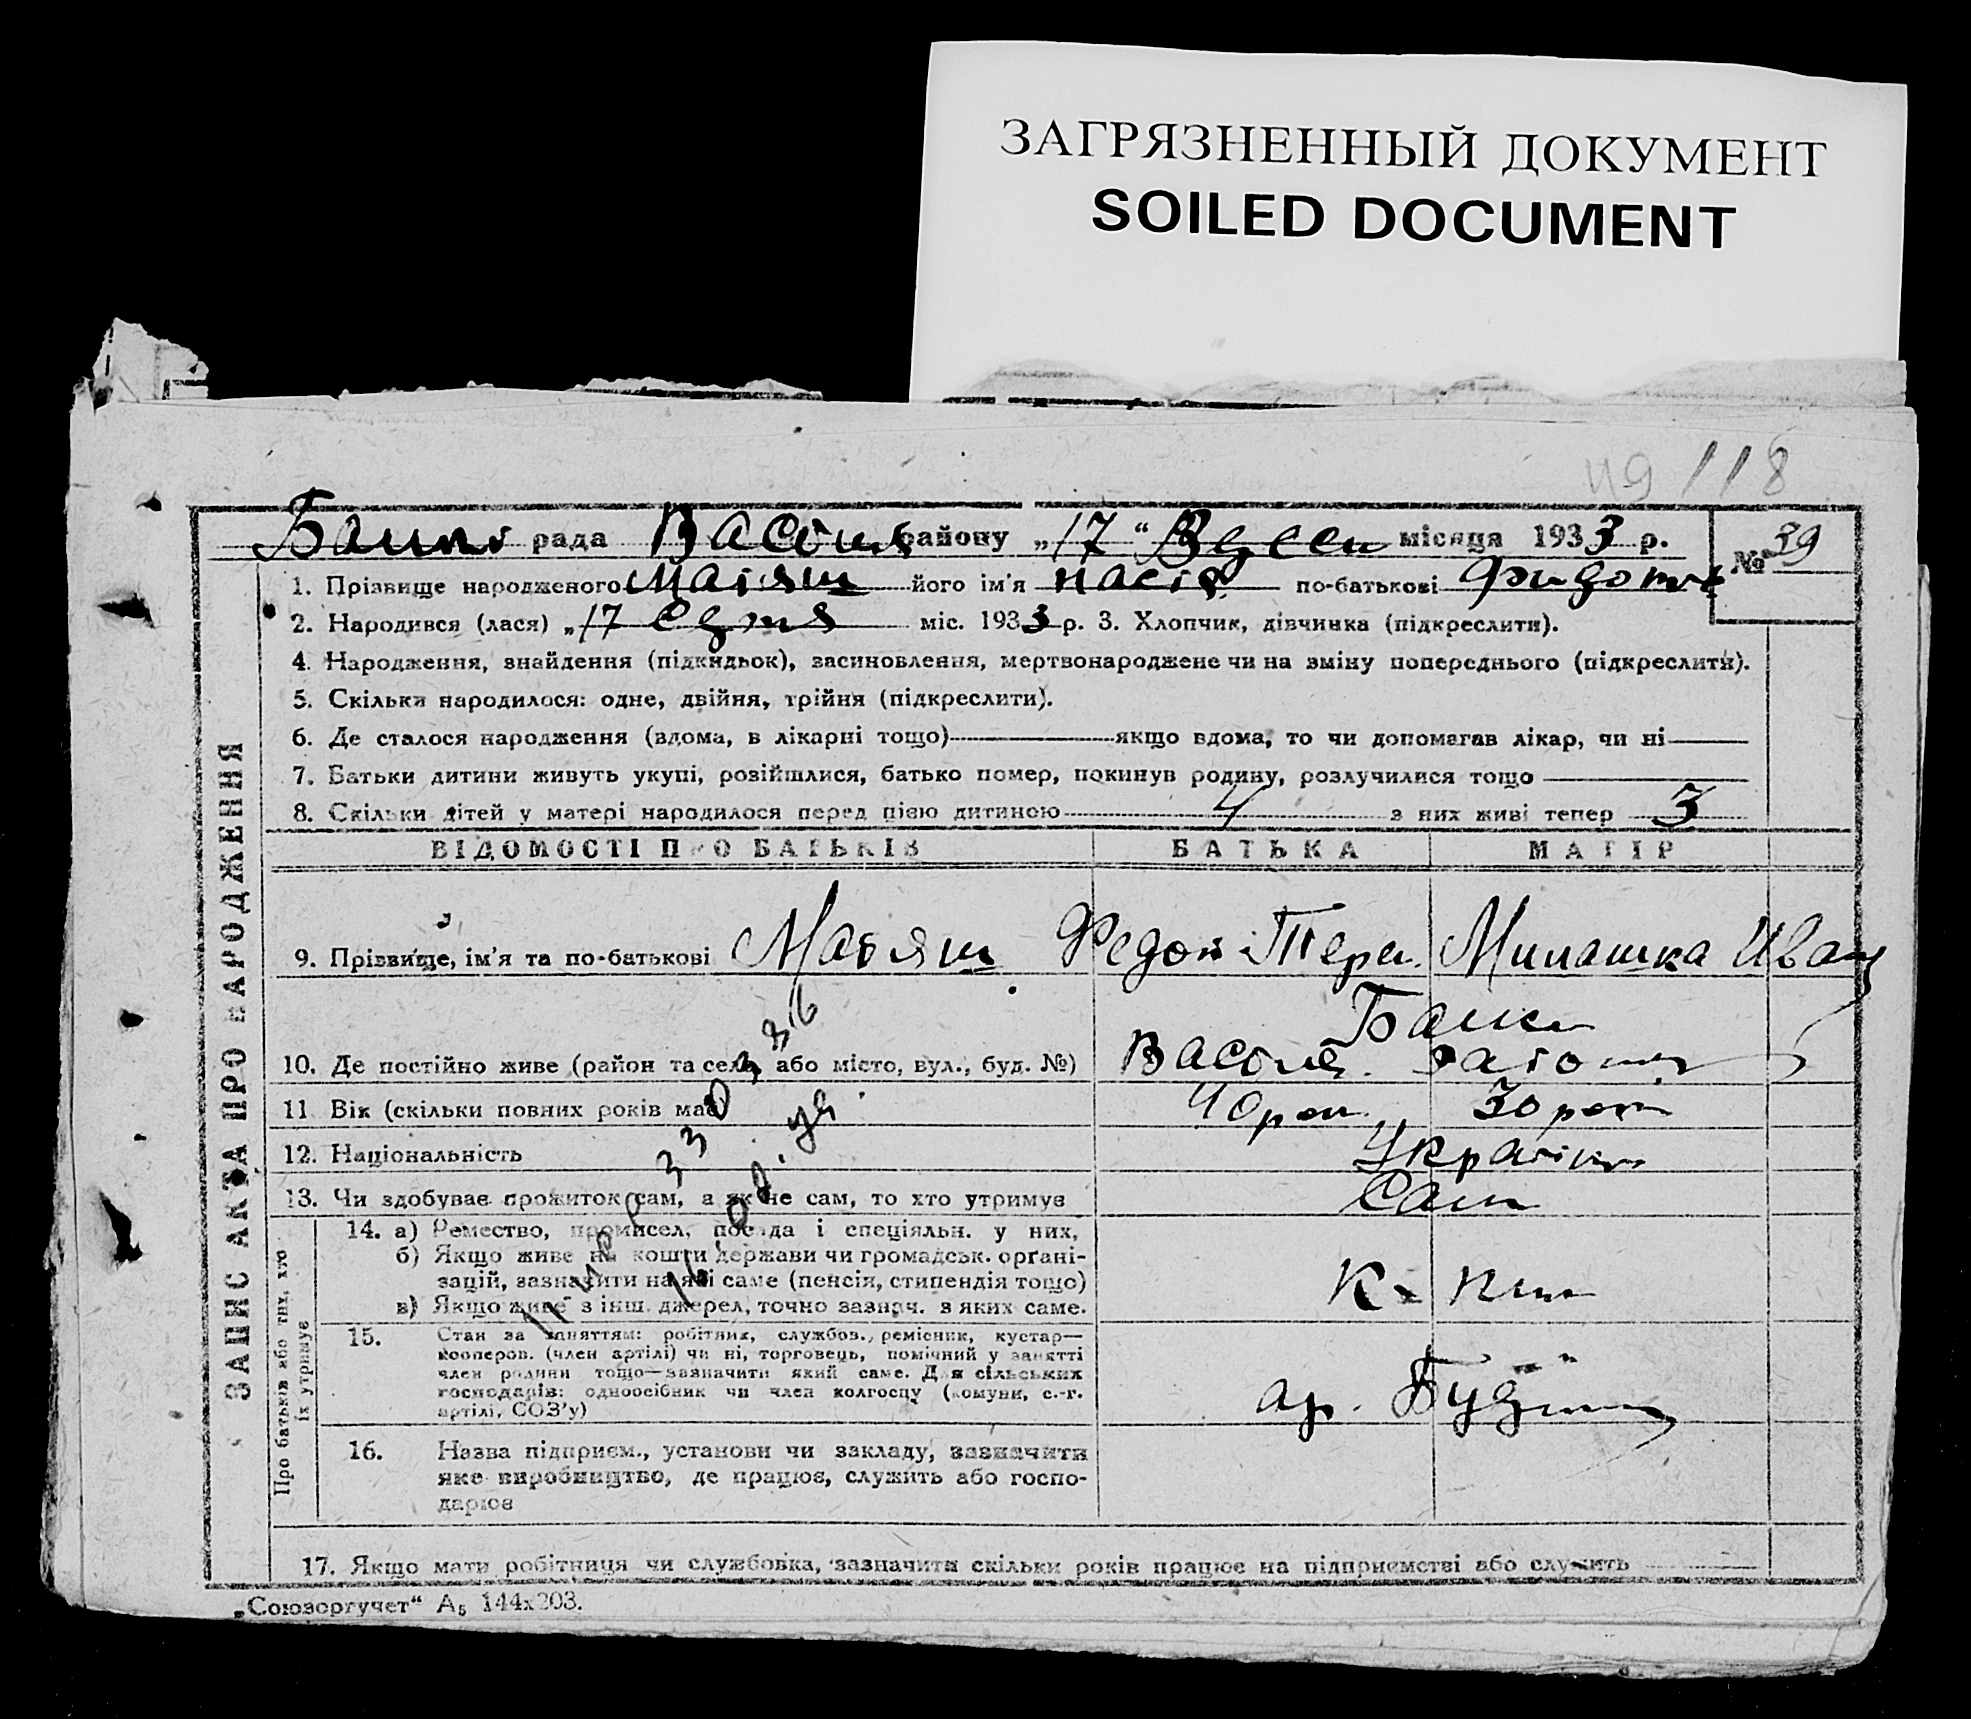 ЗАГРЯЗНЕННЫЙ ДОКУМЕНТ
SOILED DOCUMENT
118
рада району „17“ місяця 1933 р. № 39
1. Прізвище народженого Матяш його ім'я по-батькові
2. Народився (лася) „17 міс. 1933 р. 3. Хлопчик, дівчинка (підкреслити).
4. Народження, знайдення (підкидьок), засиновлення, мертвонароджене чи на зміну попереднього (підкреслити).
5. Скільки народилося: одне, двійня, трійня (підкреслити).
6. Де сталося народження (вдома, в лікарні тощо) якщо вдома, то чи допомагав лікар, чи ні
7. Батьки дитини живуть укупі, розійшлися, батько помер, покинув родину, розлучилися тощо
8. Скільки дітей у матері народилося перед цією дитиною 4 з них живі тепер 3
ЗАПИС АКТА ПРО НАРОДЖЕННЯ
ВІДОМОСТІ ПРО БАТЬКІВ БАТЬКА МАТІР
9. Прізвище, ім'я та по-батькові Матяш Федот Иван
10. Де постійно живе (район та села або місто, вул., буд. №)
11 Вік (скільки повних років має) 40 рок 30 рок
12. Національність
13. Чи здобуває прожиток сам, а як не сам, то хто утримує Сам
Про батьків або тих, хто їх утримує
14. а) Ремество, промисел, посада і спеціяльн. у них,
б) Якщо живе на кошти держави чи громадськ. органі-
зацій, зазначити на які саме (пенсія, стипендія тощо)
в) Якщо живе з інш. джерел, точно зазнач. з яких саме.
15. Стан за заняттям: робітник, службов., ремісник, кустар—
кооперов. (член артілі) чи ні, торговець, помічний у занятті
член родини тощо—зазначити який саме. Для сільських
господарів: одноосібник чи член колгоспу (комуни, с.-г.
артілі, СОЗ'у)
16. Назва підприєм., установи чи закладу, зазначити
яке виробництво, де працює, служить або госпо-
дарює
17. Якщо мати робітниця чи службовка, зазначити скільки років працює на підприємстві або служить
„Союзоргучет“ А5 144х203.